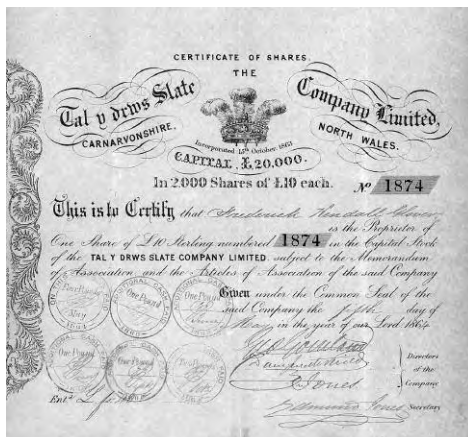 CERTIFICATE OF SHARES.
THE
Tal y drws Slate Company Limited,
CARNARVONSHIRE. NORTH WALES.
Incorporated 15th October 1863
CAPITAL £20,000.
In 2,000 Shares of £10 each. No 1874
This is to Certify that Frederick Kendall
is the Proprietor of
One Share of £10 Sterling numbered 1874 in the Capital Stock
of the TAL Y DRWS SLATE COMPANY LIMITED, subject to the Memorandum
of Association and the Articles of Association of the said Company
Given under the Common Seal of the
said Company the fifth day of
May in the year of our Lord 1864
Directors
of the
Company
Jones
Jones Secretary
ADDITIONAL CASH PAID
One Pound
May
1864
ADDITIONAL CASH PAID
One Pound
ADDITIONAL CASH PAID
One Pound
One Pound
One Pound
One Pound
Entd